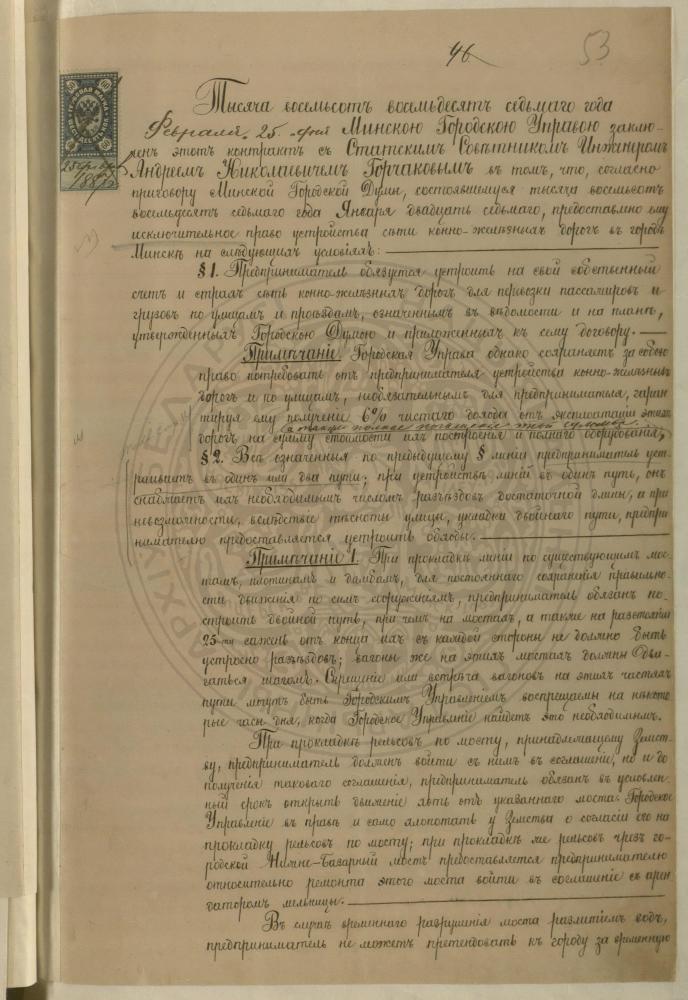 46
53
Тысяча восемьсотъ восемьдесятъ седьмаго года
Февраля 25 дня Минскою Городскою Управою заклю-
ченъ этотъ контрактъ съ Статскимъ Совѣтникомъ Инженеромъ
Андреемъ Николаевичемъ Горчаковымъ въ томъ, что, согласно
приговору Минской Городской Думы, состоявшемуся тысяча восемьсотъ
восемьдесятъ седьмаго года Января двадцать седьмаго, предоставлено ему
исключительное право устройства сѣти конно-желѣзныхъ дорогъ въ городѣ
Минскѣ на слѣдующихъ условіяхъ:
§ 1. Предприниматель обязуется устроить на свой собственный
счетъ и страхъ сѣть конно-желѣзныхъ дорогъ для перевозки пассажировъ и
грузовъ по улицамъ и проѣздамъ, означеннымъ въ вѣдомости и на планѣ,
утвержденныхъ Городскою Думою и приложенныхъ къ сему договору.
Примѣчаніе. Городская Управа однако сохраняетъ за собою
право потребовать отъ предпринимателя устройства конно-желѣзныхъ
дорогъ и по улицамъ, необязательнымъ для предпринимателя, гаран
тируя ему полученіе 6% чистаго дохода отъ эксплоатаціи этихъ
а также полное погашеніе этой суммы
дорогъ на сумму стоимости ихъ построенія и полнаго оборудованія,
§ 2. Всѣ означенныя по предыдущему § линіи предприниматель уст
раиваетъ въ одинъ или два пути; при устройствѣ линій въ одинъ путь, онъ
снабжаетъ ихъ необходимымъ числомъ разъѣздовъ достаточной длины, а при
невозможности, вслѣдствіе тѣсноты улицы, укладки двойнаго пути, предпри
нимателю предоставляется устроить обходы.
Примѣчаніе 1. При прокладкѣ линіи по существующимъ мос
тамъ, плотинамъ и дамбамъ, для постояннаго сохраненія правильно-
сти движенія по симъ сооруженіямъ, предприниматель обязанъ по-
строить двойной путь, при чемъ на мостахъ, а также на разстояніи
25-ти сажень отъ конца ихъ съ каждой стороны не должно быть
устроено разъѣздовъ; вагоны же на этихъ мостахъ должны дви-
гаться шагомъ. Скрещеніе или встрѣча вагоновъ на этихъ частяхъ
пути могутъ быть Городскимъ Управленіемъ воспрещаемы на нѣкото
рые часы дня, когда Городское Управленіе найдетъ это необходимымъ.
При прокладкѣ рельсовъ по мосту, принадлежащему Земст-
ву, предприниматель долженъ войти съ нимъ въ соглашеніе, но и до
полученія таковаго соглашенія, предприниматель обязанъ въ условлен-
ный срокъ открыть движеніе хотя отъ указаннаго моста. Городское
Управленіе въ правѣ и само хлопотать у Земства о согласіи его на
прокладку рельсовъ по мосту; при прокладкѣ же рельсовъ чрезъ го-
родской Нижне-Базарный мостъ предоставляется предпринимателю
относительно ремонта этого моста войти въ соглашеніе съ арен
даторомъ мельницы.
Въ случаѣ временнаго разрушенія моста разлитіемъ водъ,
предприниматель не можетъ претендовать къ городу за временную